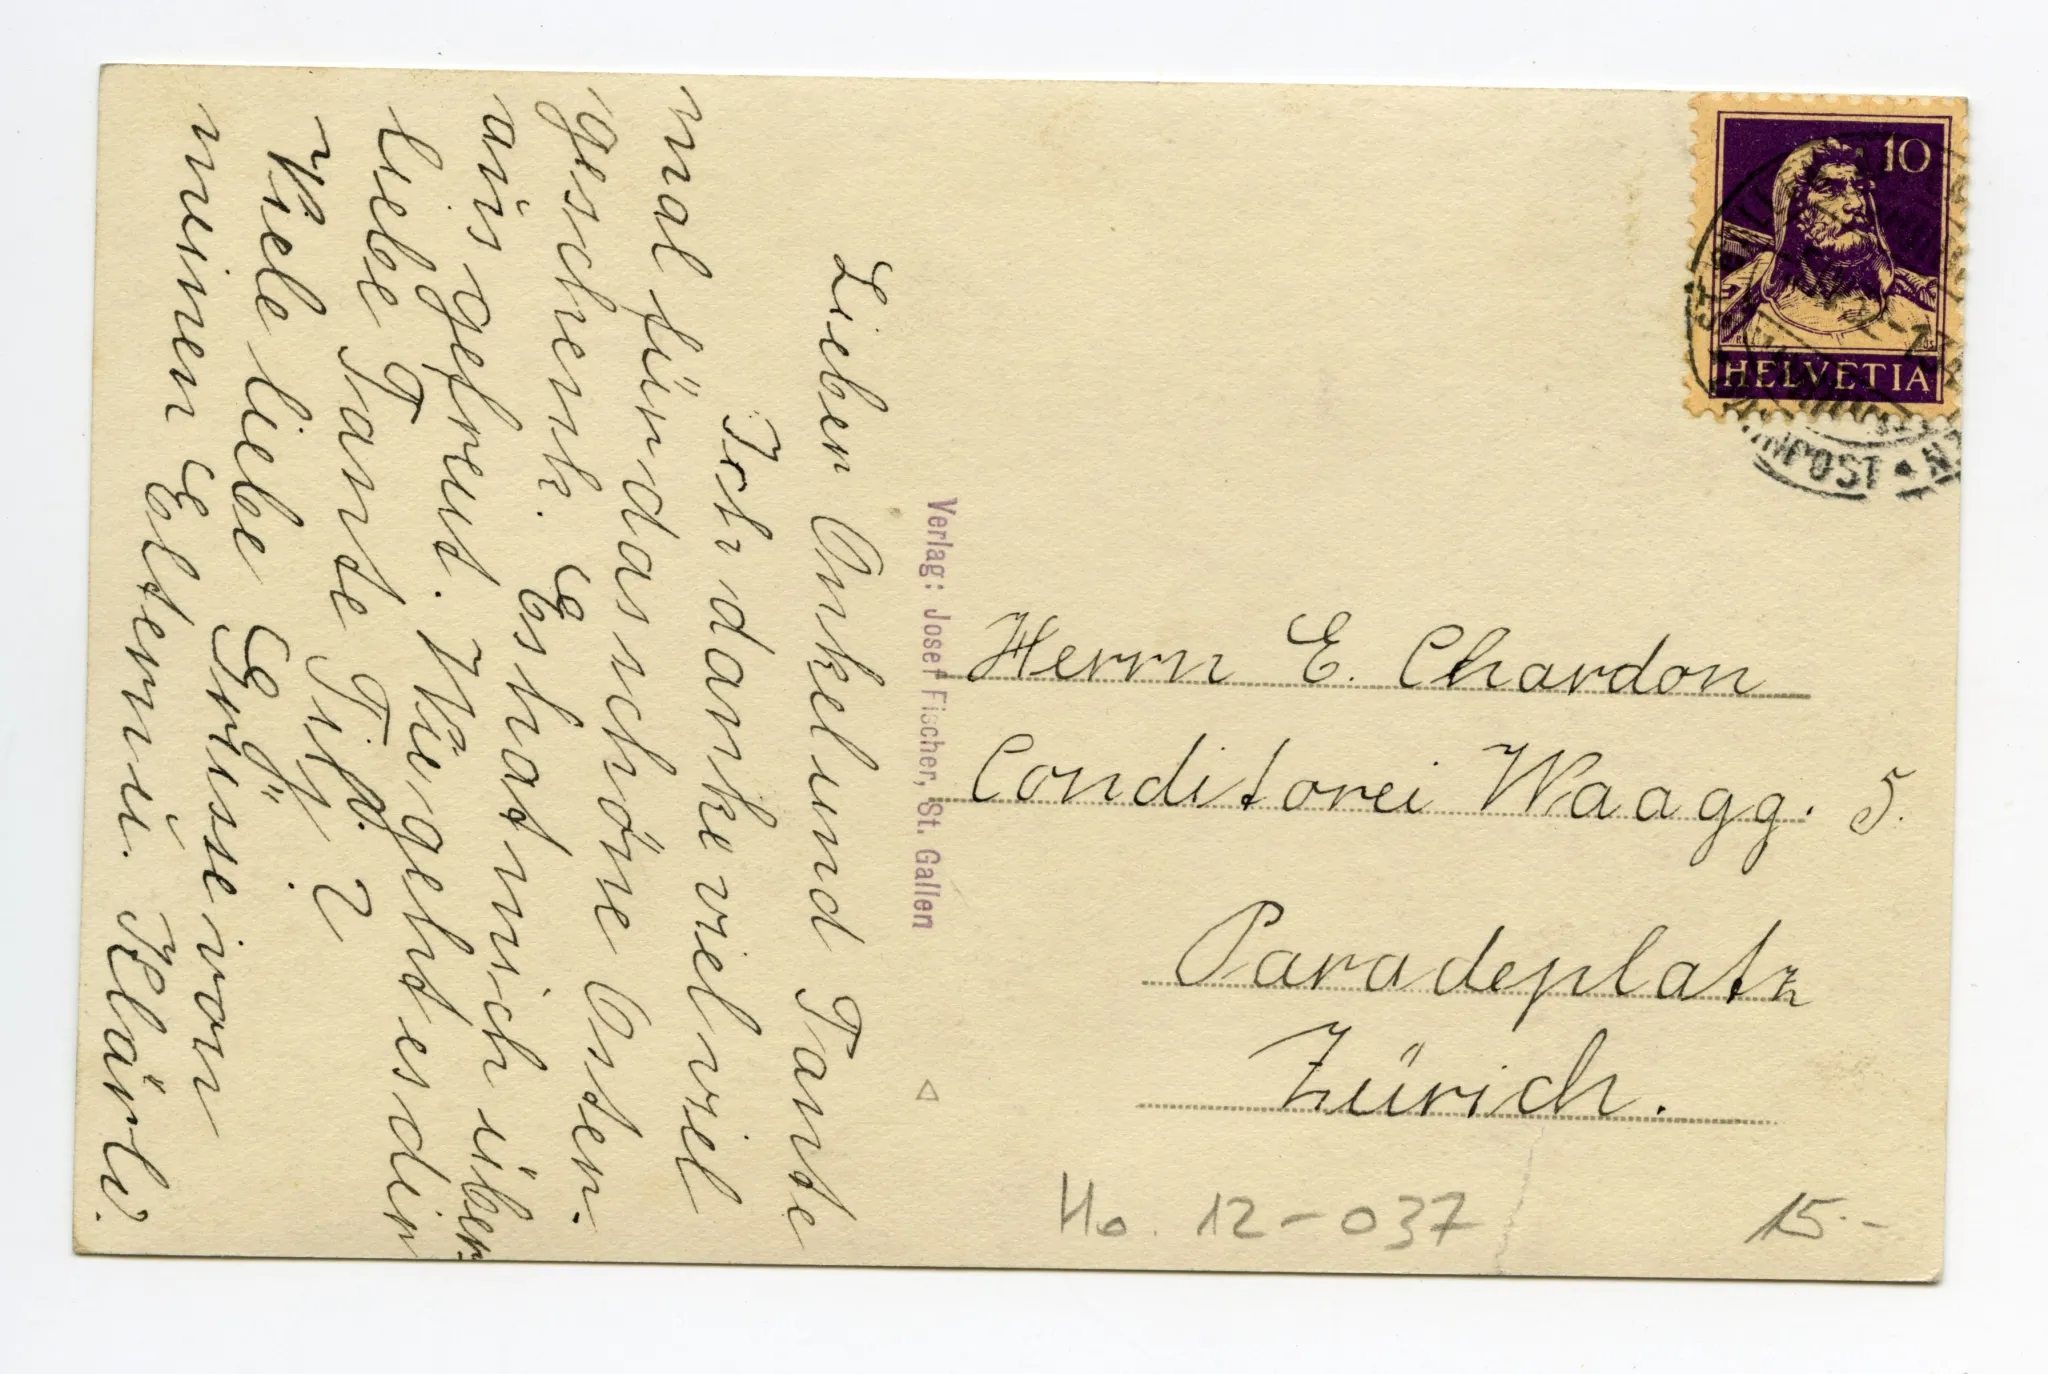 Lieber Onkel und Tante
Ich danke viel viel
mal für das schöne Osten-
geschenk. Es hat mich über
aus gefreut. Wie geht es dir
liebe Tante Titz?
Viele liebe Grüsse von
meinen Eltern u. Klärli.
Verlag: Josef Fischer, St. Gallen
10
HELVETIA
Herrn E. Chardon
Conditorei Waagg. 5.
Paradeplatz
Zürich.
Ho. 12-037
15.-